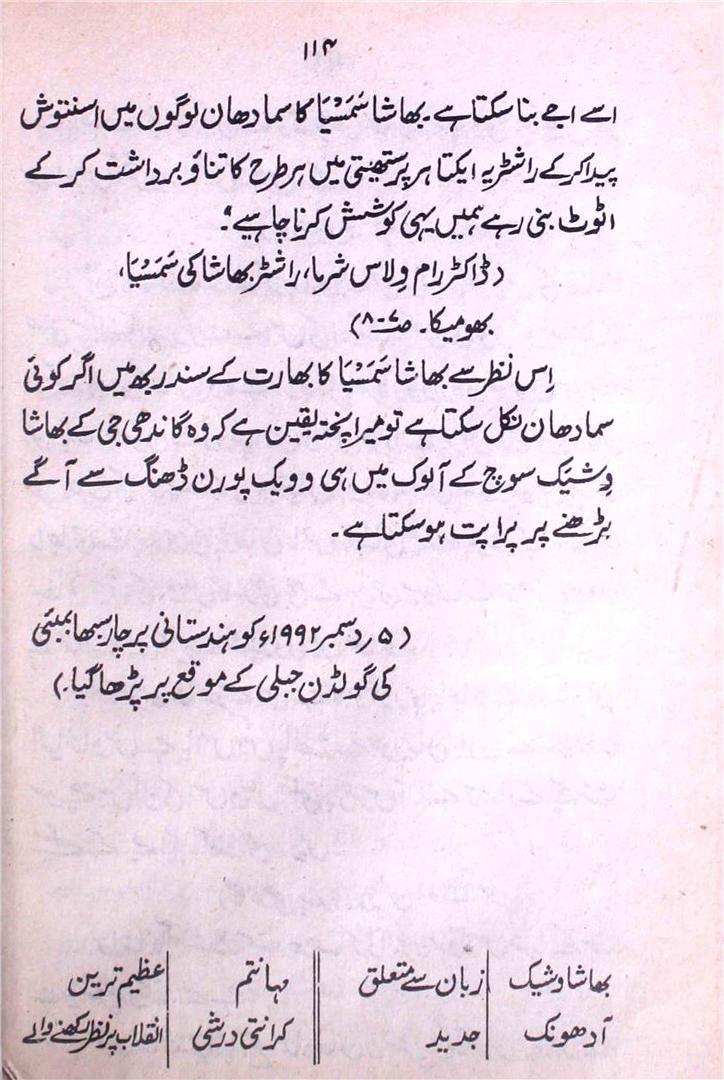 ۱۱۴
اسے اجے بنا سکتا ہے۔ بھاشا سَمَسْیَا کا سمادھان لوگوں میں اسنتوش
پیدا کر کے راشٹریہ ایکتا ہر پرستھیتی میں ہر طرح کا تناؤ برداشت کر کے
اٹوٹ بنی رہے ہمیں یہی کوشش کرنا چاہیے"۔
(ڈاکٹر رام وِلاس شرما، راشٹر بھاشا کی سَمَسْیَا،
بھومیکا۔ صـ ۷-۸)
اِس نظر سے بھاشا سَمَسْیَا کا بھارت کے سندربھ میں اگر کوئی
سمادھان نکل سکتا ہے تو میرا پختہ یقین ہے کہ وہ گاندھی جی کے بھاشا
وِشیَک سوچ کے آلوک میں ہی وویک پورن ڈھنگ سے آگے
بڑھنے پر پراپت ہو سکتا ہے۔
(۵ ر دسمبر ۱۹۹۲ء کو ہندستانی پرچار سبھا بمبئی
کی گولڈن جبلی کے موقع پر پڑھا گیا۔)
بھاشا وشیک | زبان سے متعلق || مہانتم | عظیم ترین
آدھونک | جدید || کرانتی درشی | انقلاب پر نظر رکھنے والے